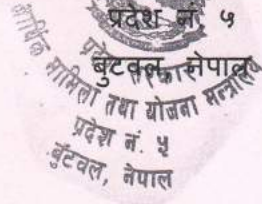 प्रदेश नं. ५
बुटवल, नेपाल
प्रदेश सरकार
आर्थिक मामिला तथा योजना मन्त्रालय
प्रदेश नं. ५
बुटवल, नेपाल